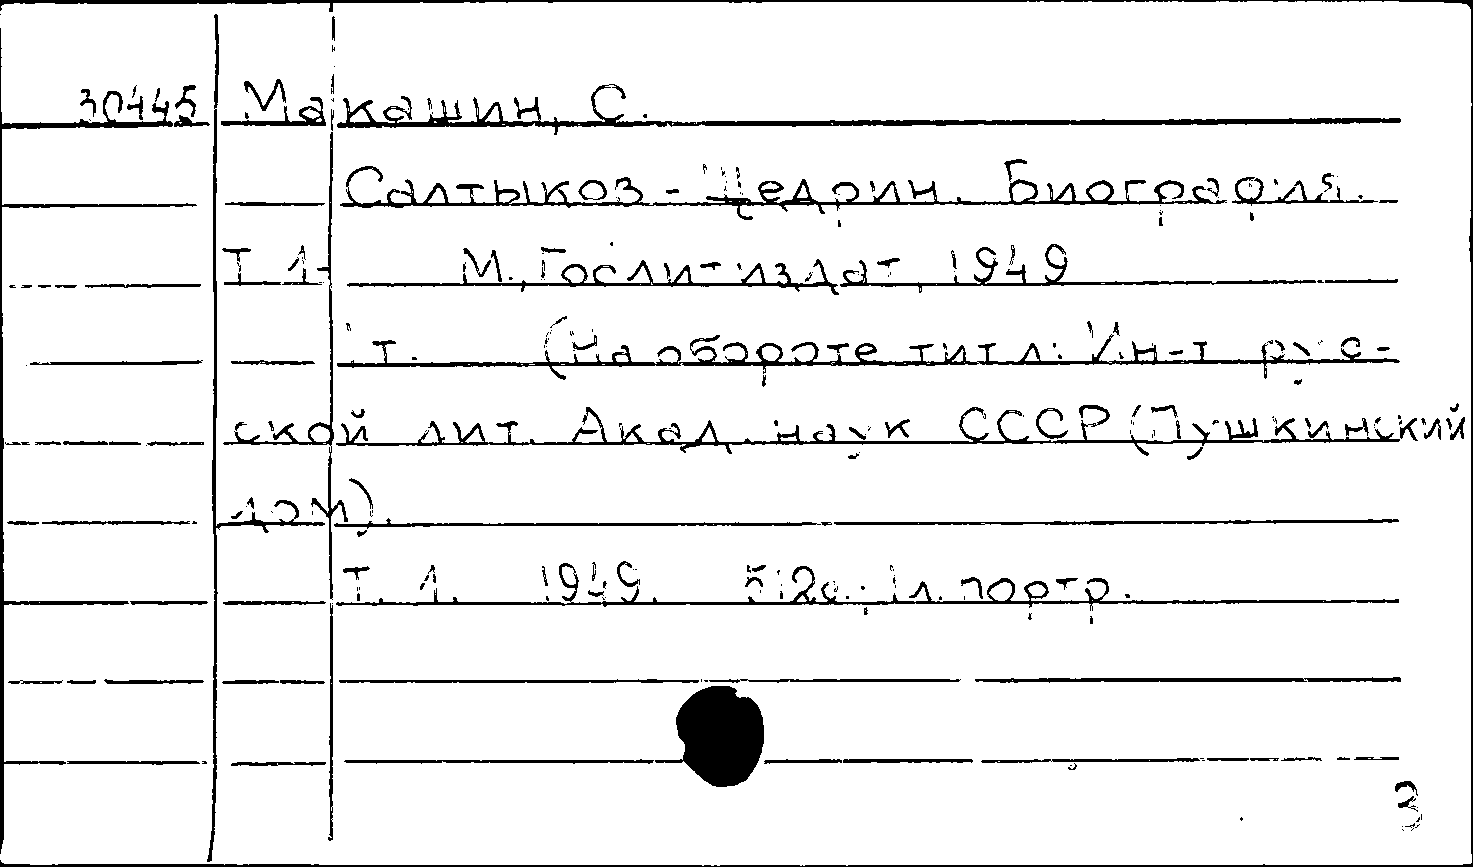 30445 Макашин, С.
Салтыков - Щедрин. Биография.
Т. 1- М., Гослитиздат, 1949
т. (На обороте титл: Ин-т рус-
ской лит. Акад. наук СССР (Пушкинский
дом).
Т. 1. 1949. 512с.; 1л. портр.
3